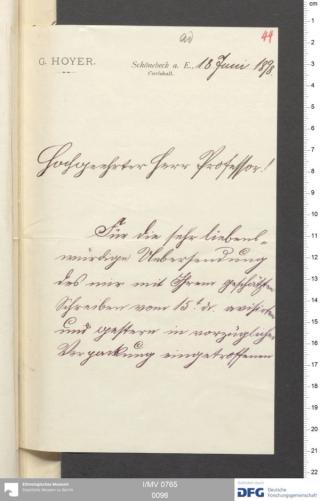 ad
44
G. HOYER.
Schönebeck a. E., 18 Juni 1898.
Carlshall.
Hochgeehrter Herr Professor!
Für die sehr liebens-
würdige Uebersendung
des mir mit Ihrem geschätzten
Schreiben vom 15.t ds. avisirten
und gestern in vorzüglicher
Verpackung eingetroffenen
cm
1
2
3
4
5
6
7
8
9
10
11
12
13
14
15
16
17
18
19
20
21
22
Ethnologisches Museum
Staatliche Museen zu Berlin
I/MV 0765
0096
DFG Deutsche
Forschungsgemeinschaft